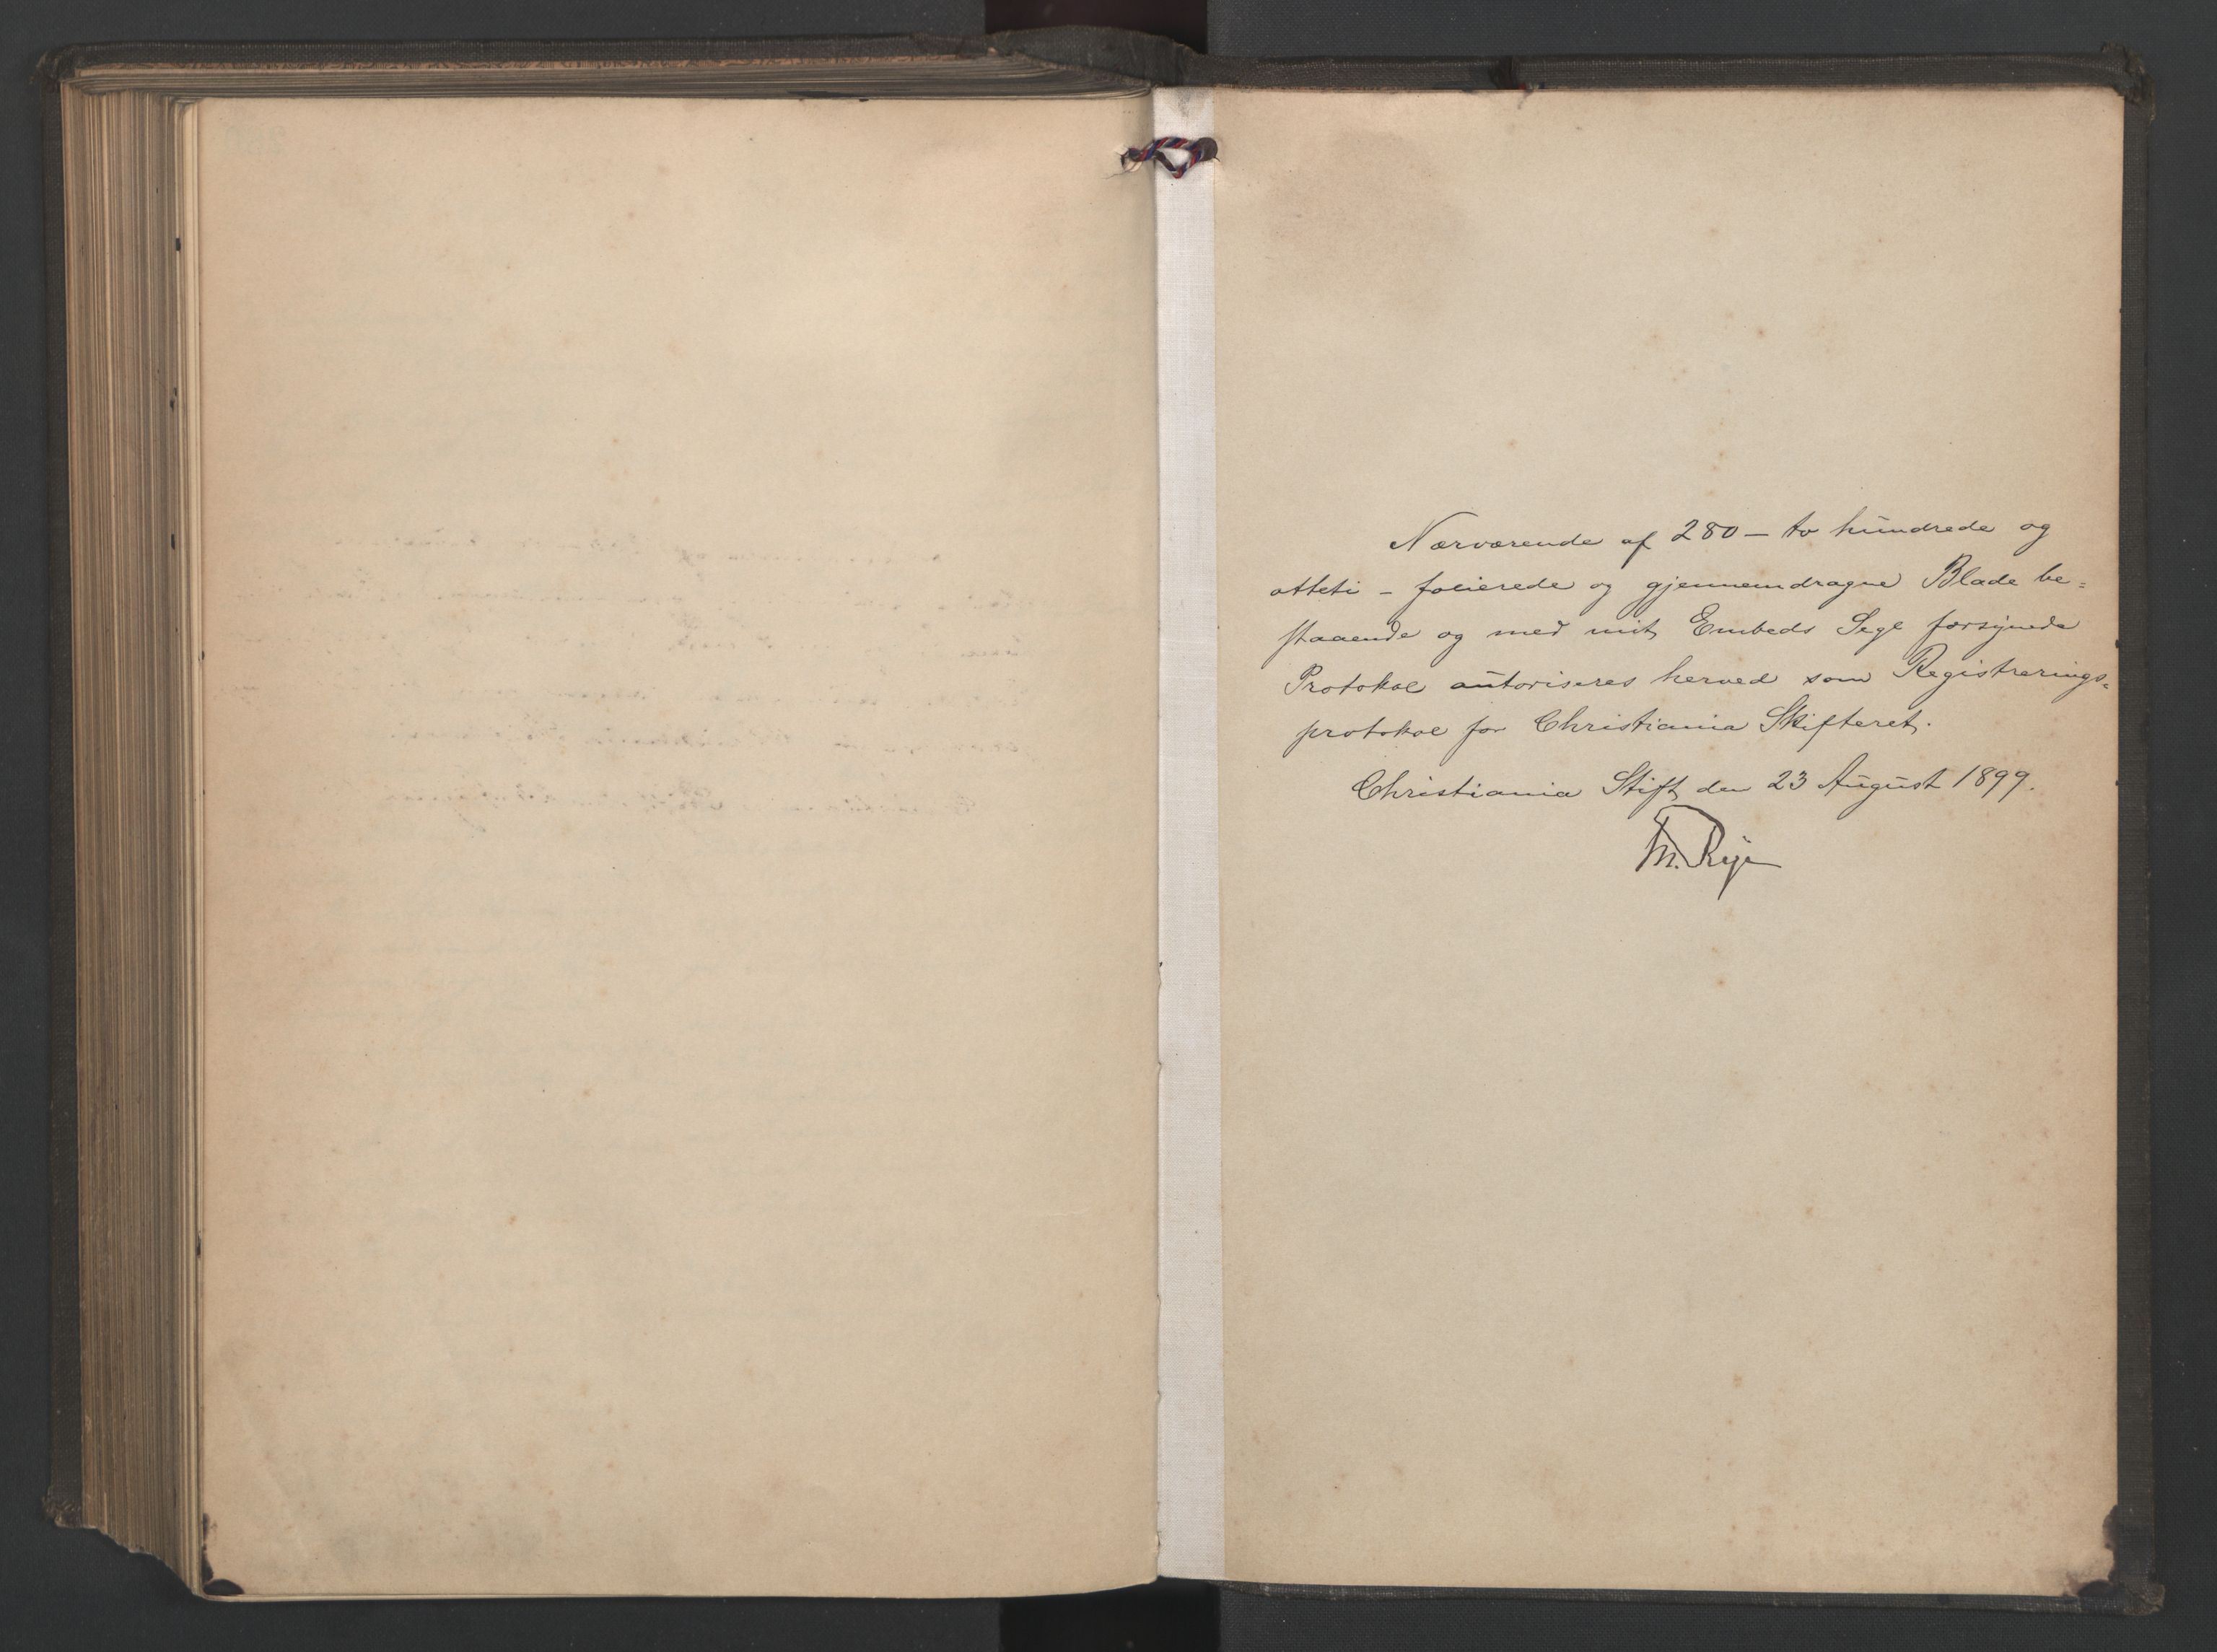 Nærværende af 280 – to hundrede og
otteti – folierede og gjennemdragne Blade be=
staaende og med mit Embeds Segl forsynede
Protokol autoriseres herved som Registrerings=
protokol for Christiania Skifteret.
Christiania Stift den 23 August 1899.
M. Rye